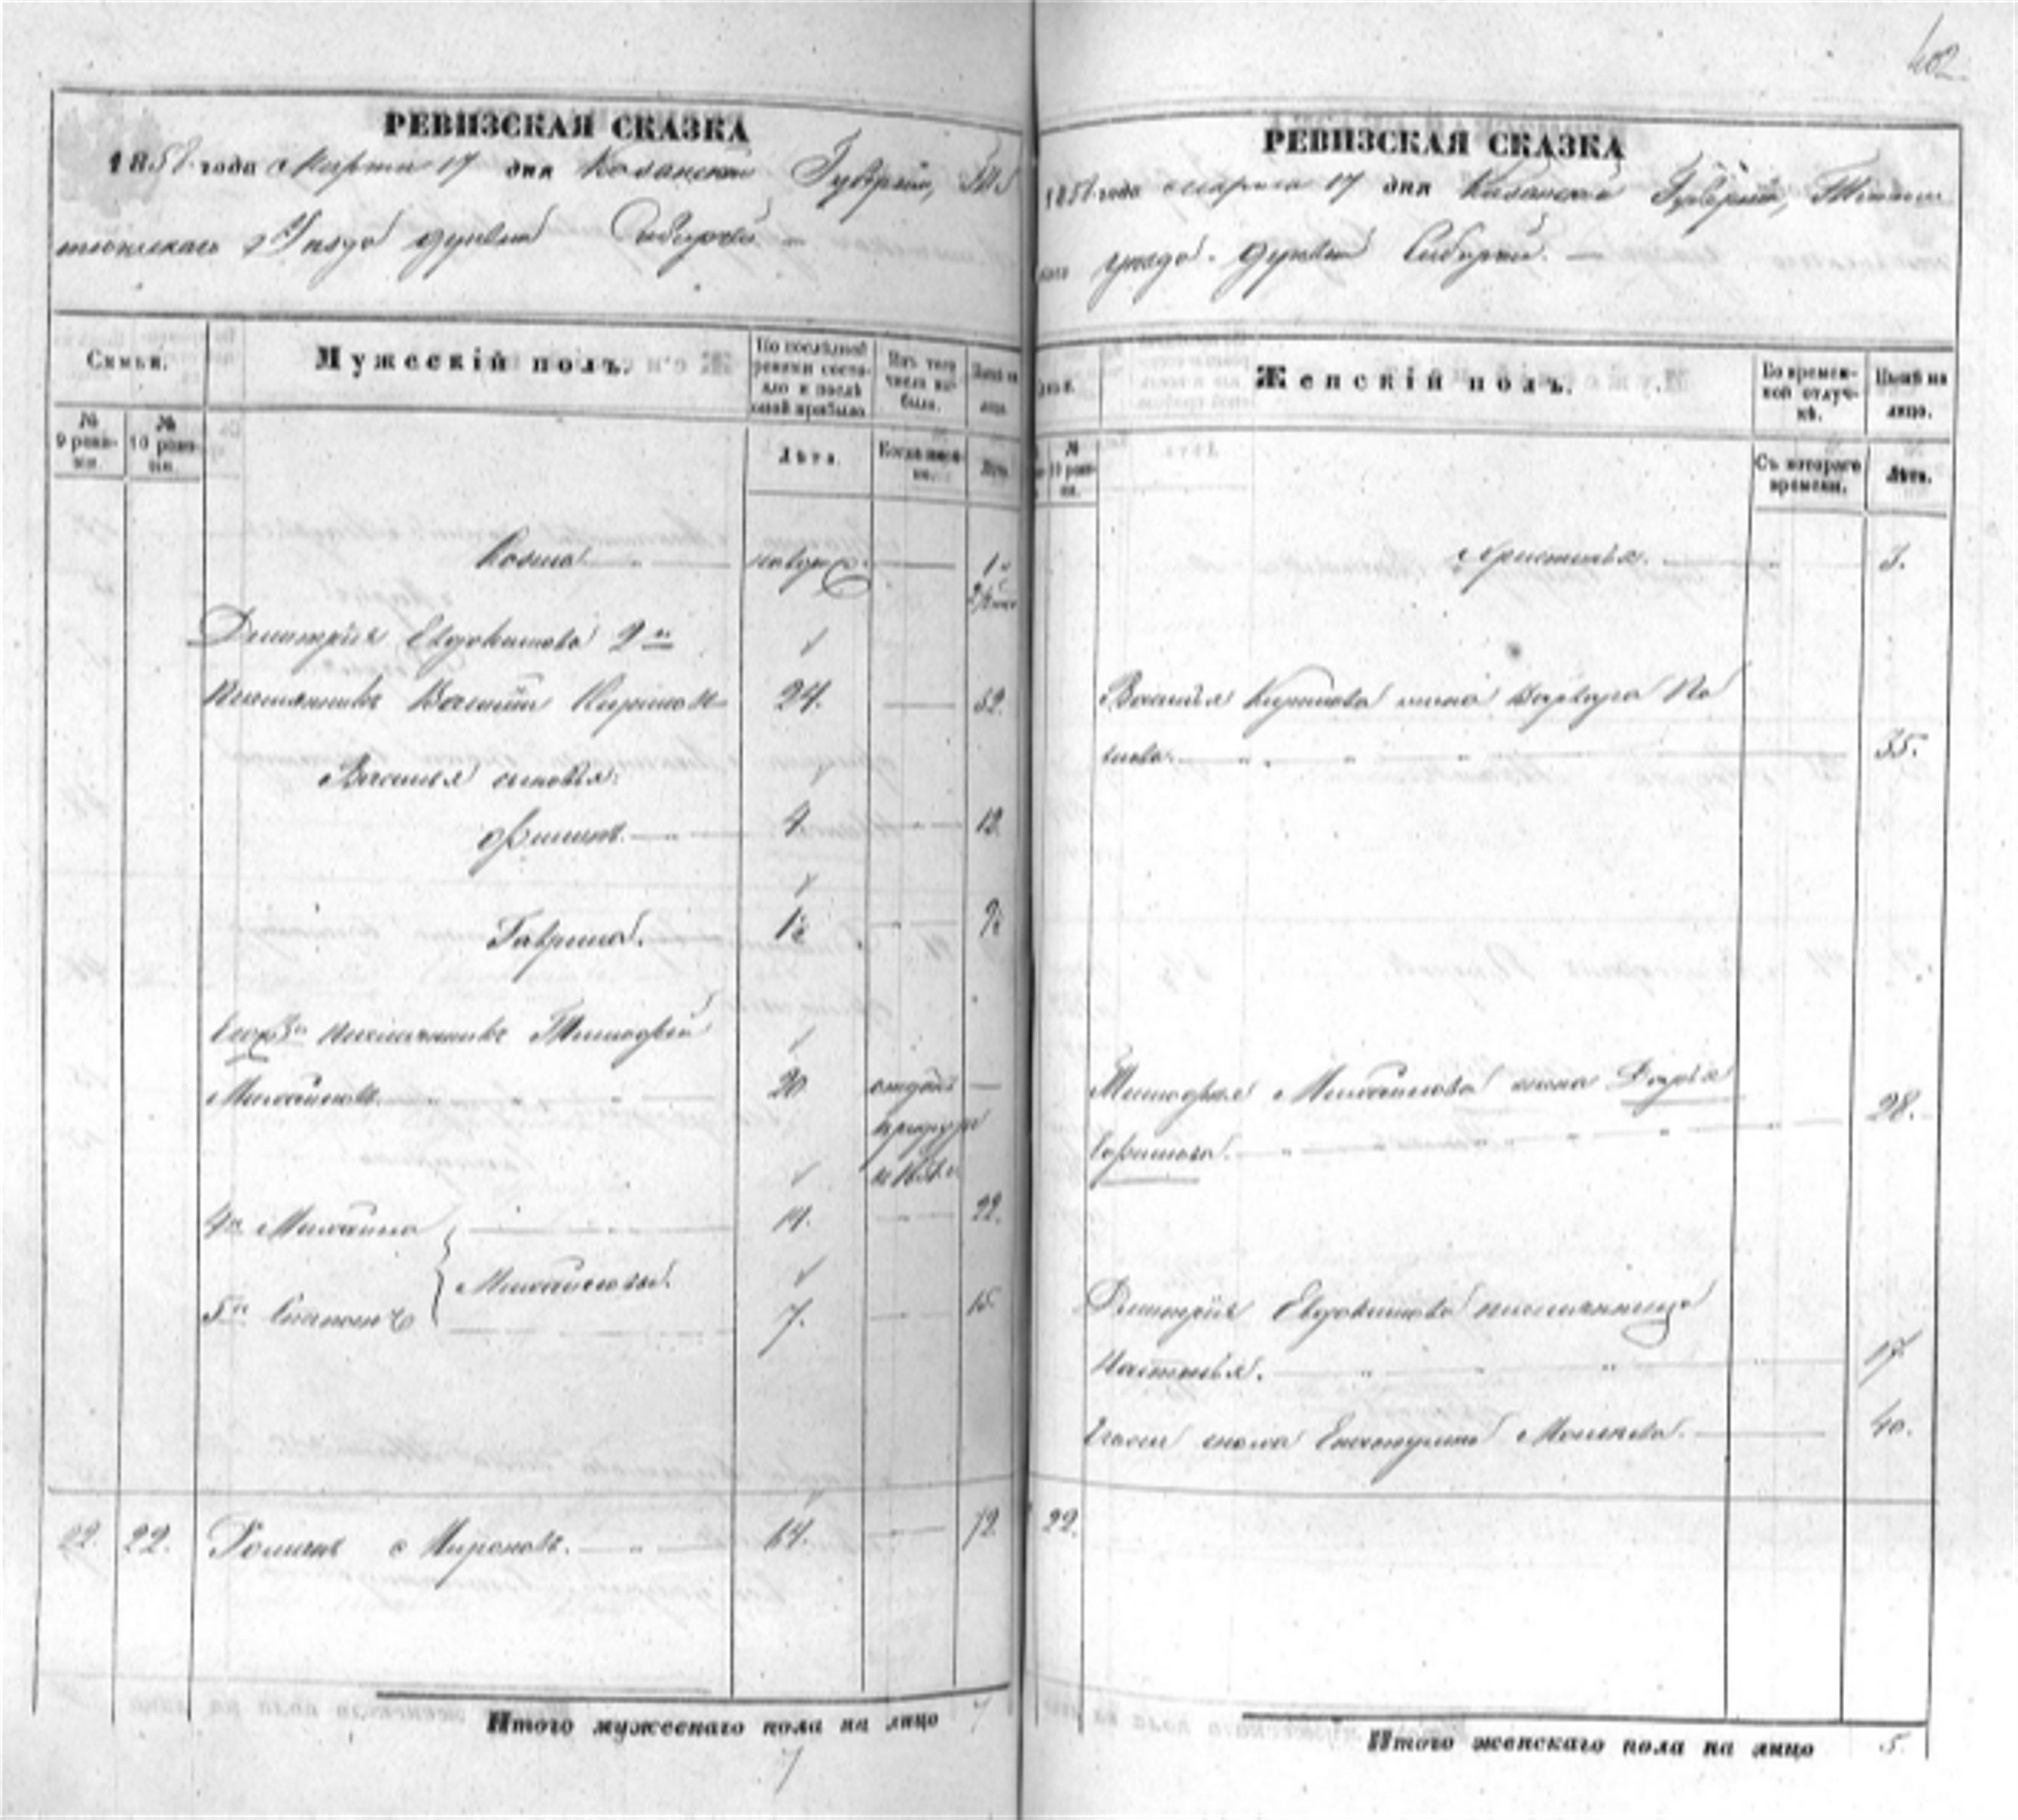 402.
РЕВИЗСКАЯ СКАЗКА
1858 года Марта 17 дня Казанской Губернии, Тѣ
тюшскаго Уѣзда деревни Сибирки
Семьи.
Мужескій полъ.
По послѣдней ревизіи состояло и послѣ оной прибыло
Изъ того числа выбыло.
Нынѣ на лицо.
№ 9 ревизіи.
№ 10 ревизіи.
Лѣта.
Когда именно.
Лѣта.
Козма новорож. 1 и
Дмитрія Евдокимова 2й
племянникъ Василій 24. 32.
Василья сыновья:
Филипъ. 4. 12.
Гаврила. 1½ 9½
Его 3й племянникъ Тимофей
Михайловъ 20 отданъ
въ рекруты
4й Михайло 14. 22.
Михайловы.
5й Степанъ 7. 15.
22. 22. Романъ Мироновъ. 64. 72.
Итого мужескаго пола на лицо 7
7
РЕВИЗСКАЯ СКАЗКА
1858 года Марта 17 дня Казанской Губерніи, Тѣтюш
скаго уѣзда деревни Сибирки.
Женскій полъ.
Во временной отлучкѣ.
Нынѣ на лицо.
№ 10 ревизіи.
Съ котораго времени.
Лѣта.
Христинья. 3.
Василья жена Варвара
35.
Тимофея Михайлова жена Дарья
Ефимова. 28.
Дмитрія Евдокимова племянница
Настасья. 17.
сноха Екатерина 40.
22.
Итого женскаго пола на лицо 5.